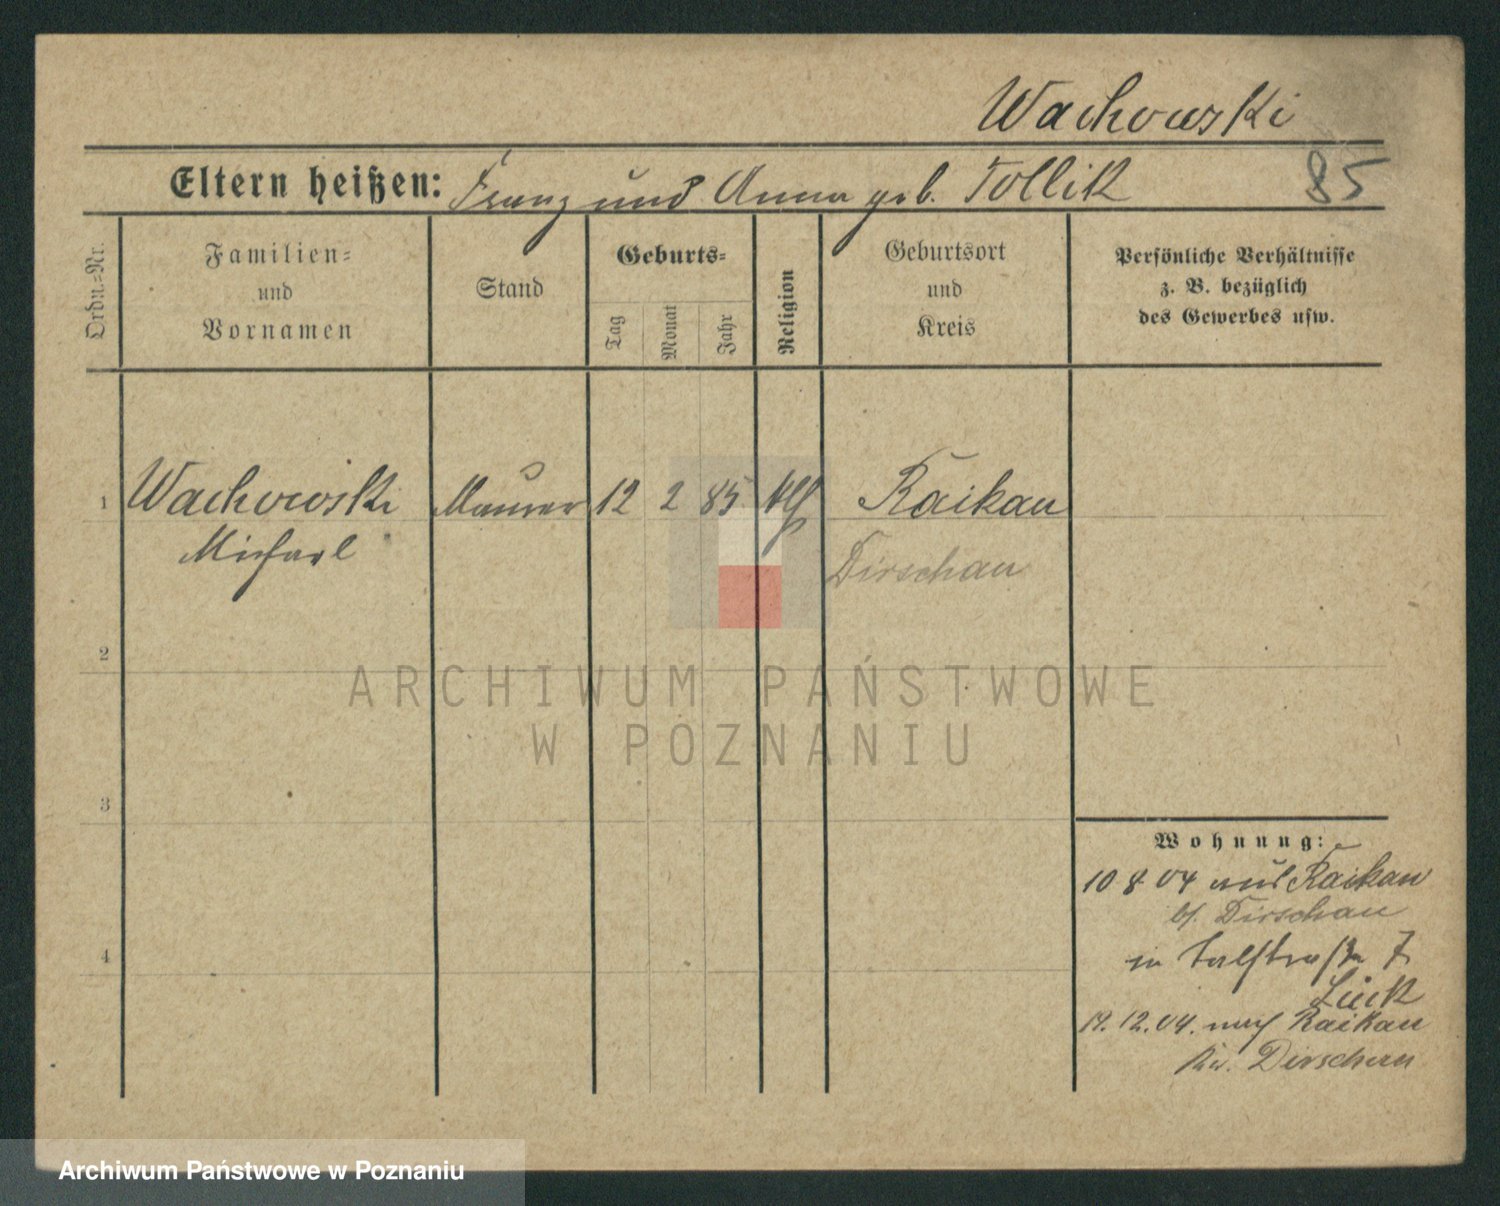 Wachowski
Eltern heißen: Franz und Anna geb. Tollik
85
Ordn.=Nr.
Familien=
und
Vornamen
Stand
Geburts=
Tag
Monat
Jahr
Religion
Geburtsort
und
Kreis
Persönliche Verhältnisse
z. B. bezüglich
des Gewerbes usw.
1 Wachowski Maurer 12 2 85 klh Raikau
Michael Dirschau
2
3
4
Wohnung:
10 8 04 aus Raikau
b/ Dirschau
in Talstraße 7
Lück
19.12.04. nach Raikau
Kr. Dirschau
ARCHIWUM PAŃSTWOWE
W POZNANIU
Archiwum Państwowe w Poznaniu